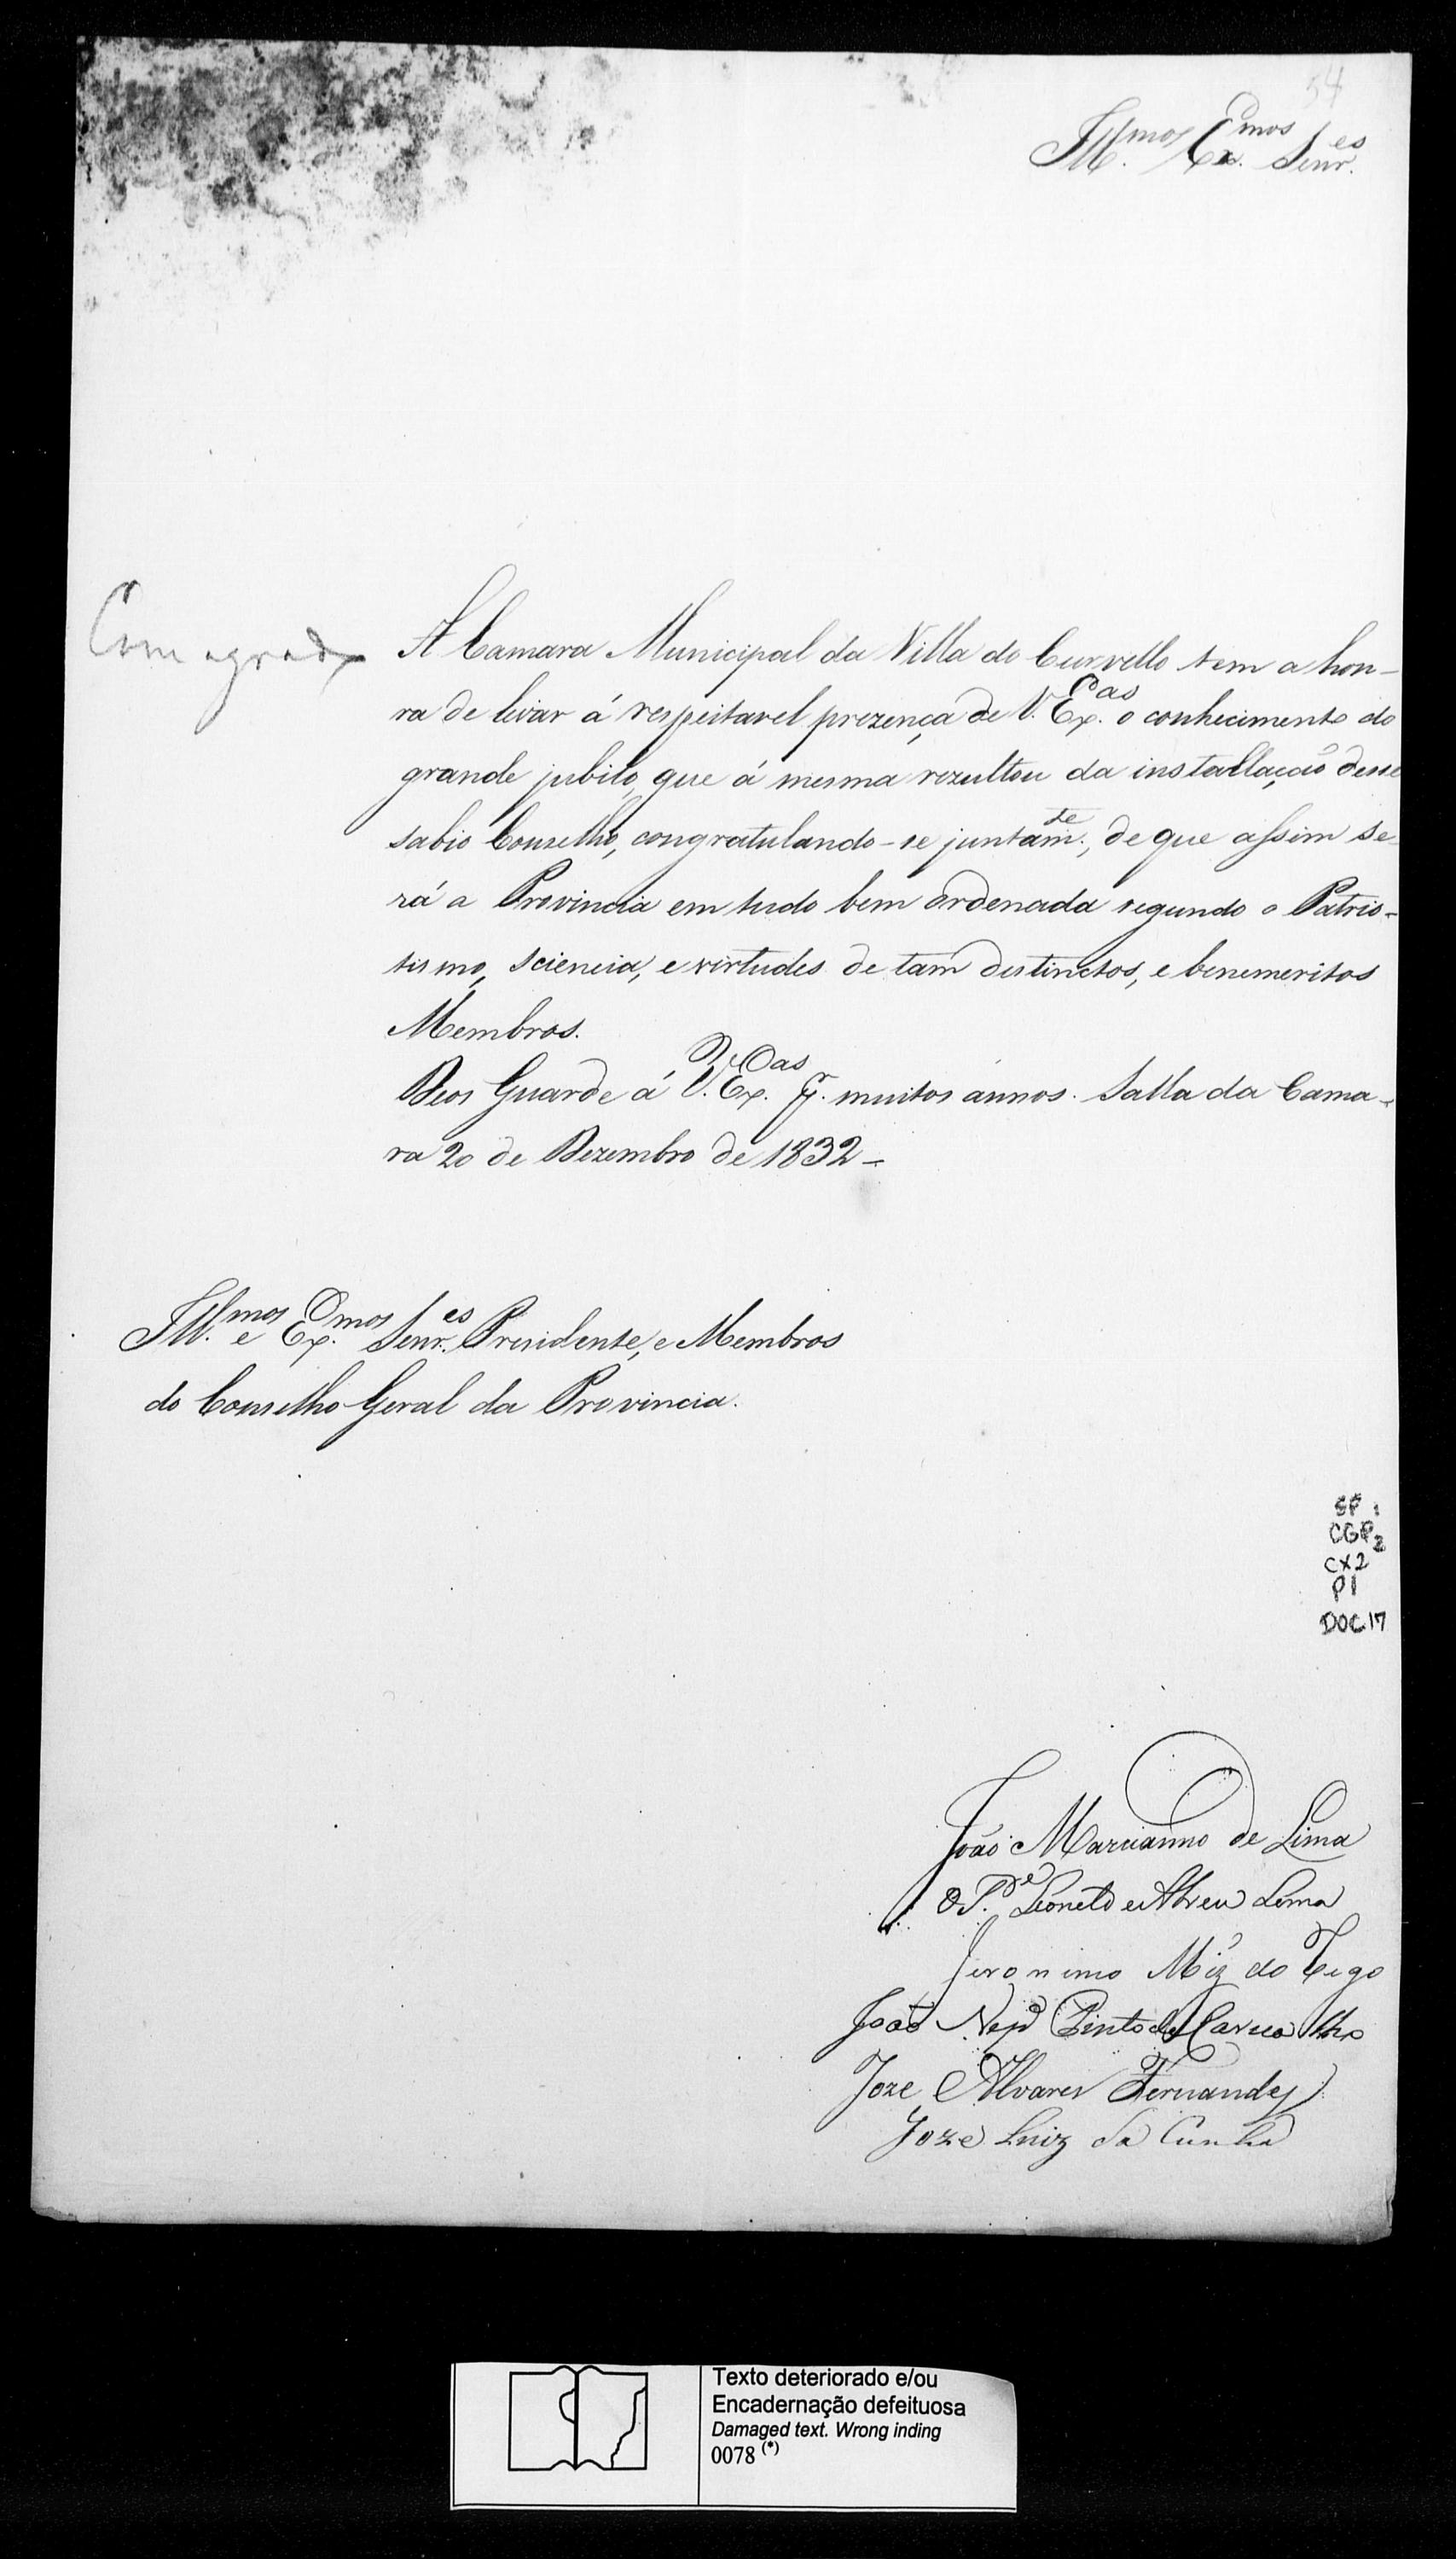 54
Ill.mos Ex.mos Senr.es
Com agrado
A Camara Municipal da Villa do Curvello tem a hon-
ra de levar á respeitavel prezença de V. Ex.cas o conhecimento do
grande jubilo, que á mesma rezultou da installação desse
sabio Conselho, congratulando-se juntam.te, de que assim se-
rá a Provincia em tudo bem ordenada segundo o Patrio-
tismo, sciencia, e virtudes de tam destinctos, e benemeritos
Membros.
Deos Guarde á V. Ex.cas p.r muitos annos. Salla da Cama-
ra 20 de Dezembro de 1832-
Ill.mos e Ex.mos Senr.es Presidente, e Membros
do Conselho Geral da Provincia.
SP 1
CGP 2
CX2
P1
DOC.17
João Marcianno de Lima
O P.e de Abreu Lima
Jeronimo Miz do Rego
João Nep. Pinto de Carvalho
Joze Alvares Fernandes
Joze Luiz da Cunha
Texto deteriorado e/ou
Encadernação defeituosa
Damaged text. Wrong inding
0078 (*)